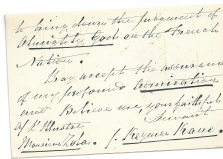 to bring down the judgement of
Almighty God on the French
Nation.
Pray accept the assurance
of my profound admiration
and believe me, your faithful
Servant
Monsieur Zola.